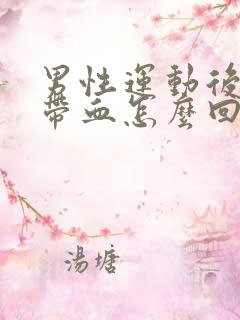 男性運動後
帶血怎麼回
湯塘